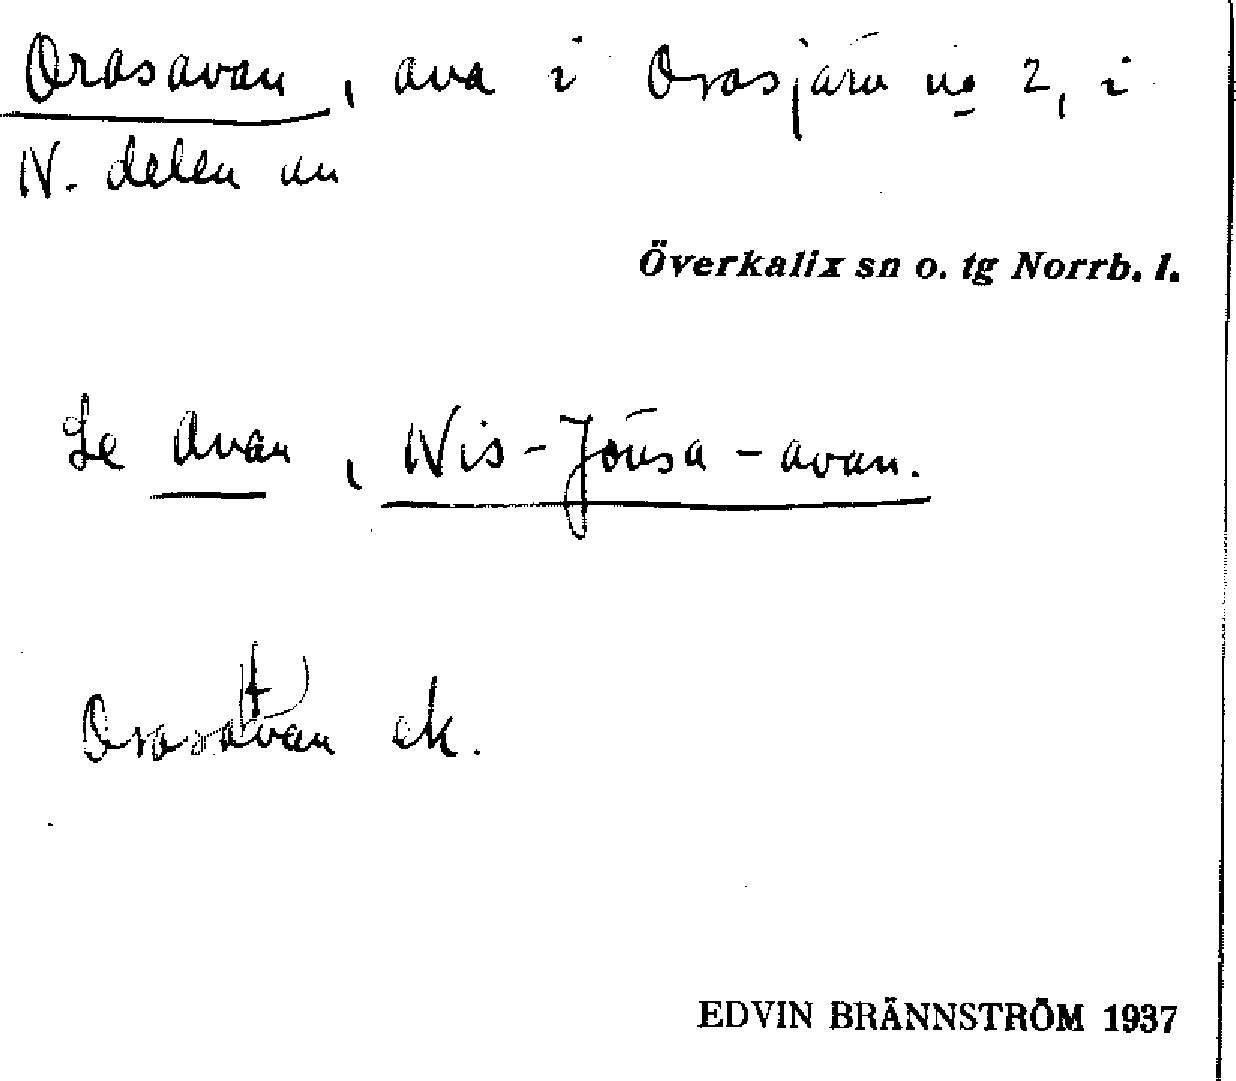 Orasavan, ava i Orasjärv nr 2, i
N. delen av
Överkalix sn o. tg Norrb. l.
Se Avan, Nis-Jönsa-avan.
Orasatvan ek.
EDVIN BRÄNNSTRÖM 1937